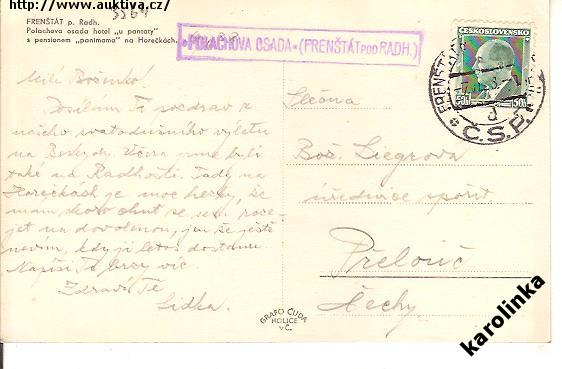 http://www.auktiva.cz/
5564
FRENŠTÁT p. Radh.
Polachova osada hotel „u pantáty"
s pensionem „panimama" na Horečkách.
•POLACHOVA OSADA•(FRENŠTÁT POD RADH.)
ČESKOSLOVENSKO
50h 50h
FRENŠTÁT
d
Č.S.P.
Milá Boženko!
Posílám Ti pozdrav z
našeho svatodušního výletu
na Beskydy. Včera jsme byli
také na Radhošti. Tady na
Horečkách je moc hezky, že
mám skoro chuť se sem roze-
jet na dovolenou, jen že ještě
nevím, kdy ji letos dostanu.
Napíši Ti brzy víc.
Zdraví Tě
Lidka.
Slečna
Bož. Siegrova
úřednice spořit.
Přelouč
Čechy
GRAFO ČUDA
HOLICE
v Č.
karolinka